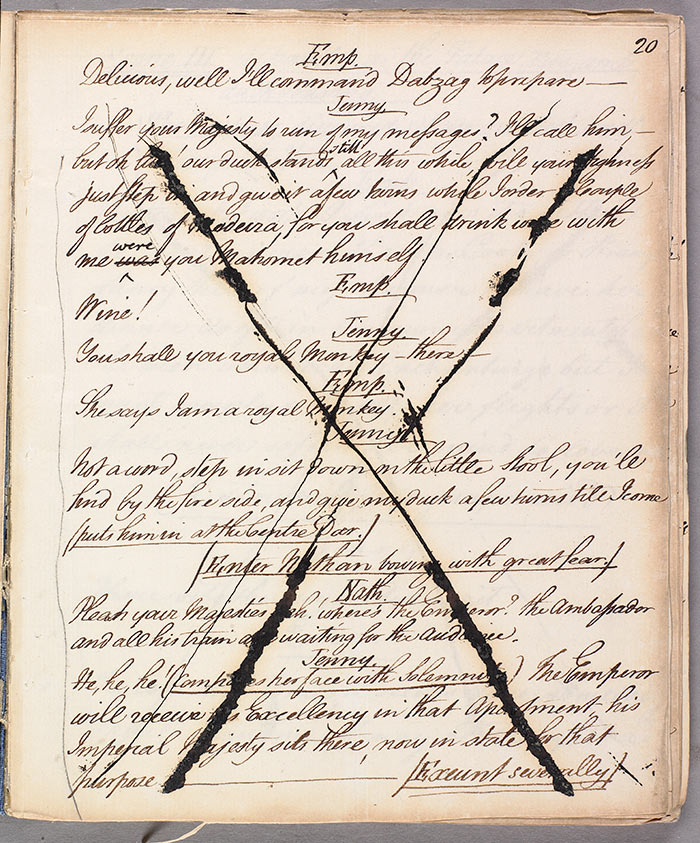 20
Emp.
Delicious, well I'll command Dabzag to prepare —
Jenny
I suffer your Majesty to run of my messages? I'll call him —
but oh our duck stands still all this while will your Highness
just step in and give it a few turns while I order a couple
of bottles of Madeira, for you shall drink wine with
me was were you Mahomet himself.
Emp.
Wine!
Jenny
You shall you royal Monkey — there —
Emp.
She says I am a royal Monkey.
Jenny
Not a word, step in sit down on the little stool, you'll
find by the fire side, and give my duck a few turns till I come
[puts him in at the Centre Door.]
[Enter Nathan bowing with great fear.]
Nath.
Pleas your Majesties where's the Emperor? the Ambassador
and all his train are waiting for the audience.
Jenny.
He, he, he! (Composes her face with Solemnity) The Emperor
will receive his Excellency in that Apartment his
Imperial Majesty sits there, now in state for that
purpose — [Exeunt severally]